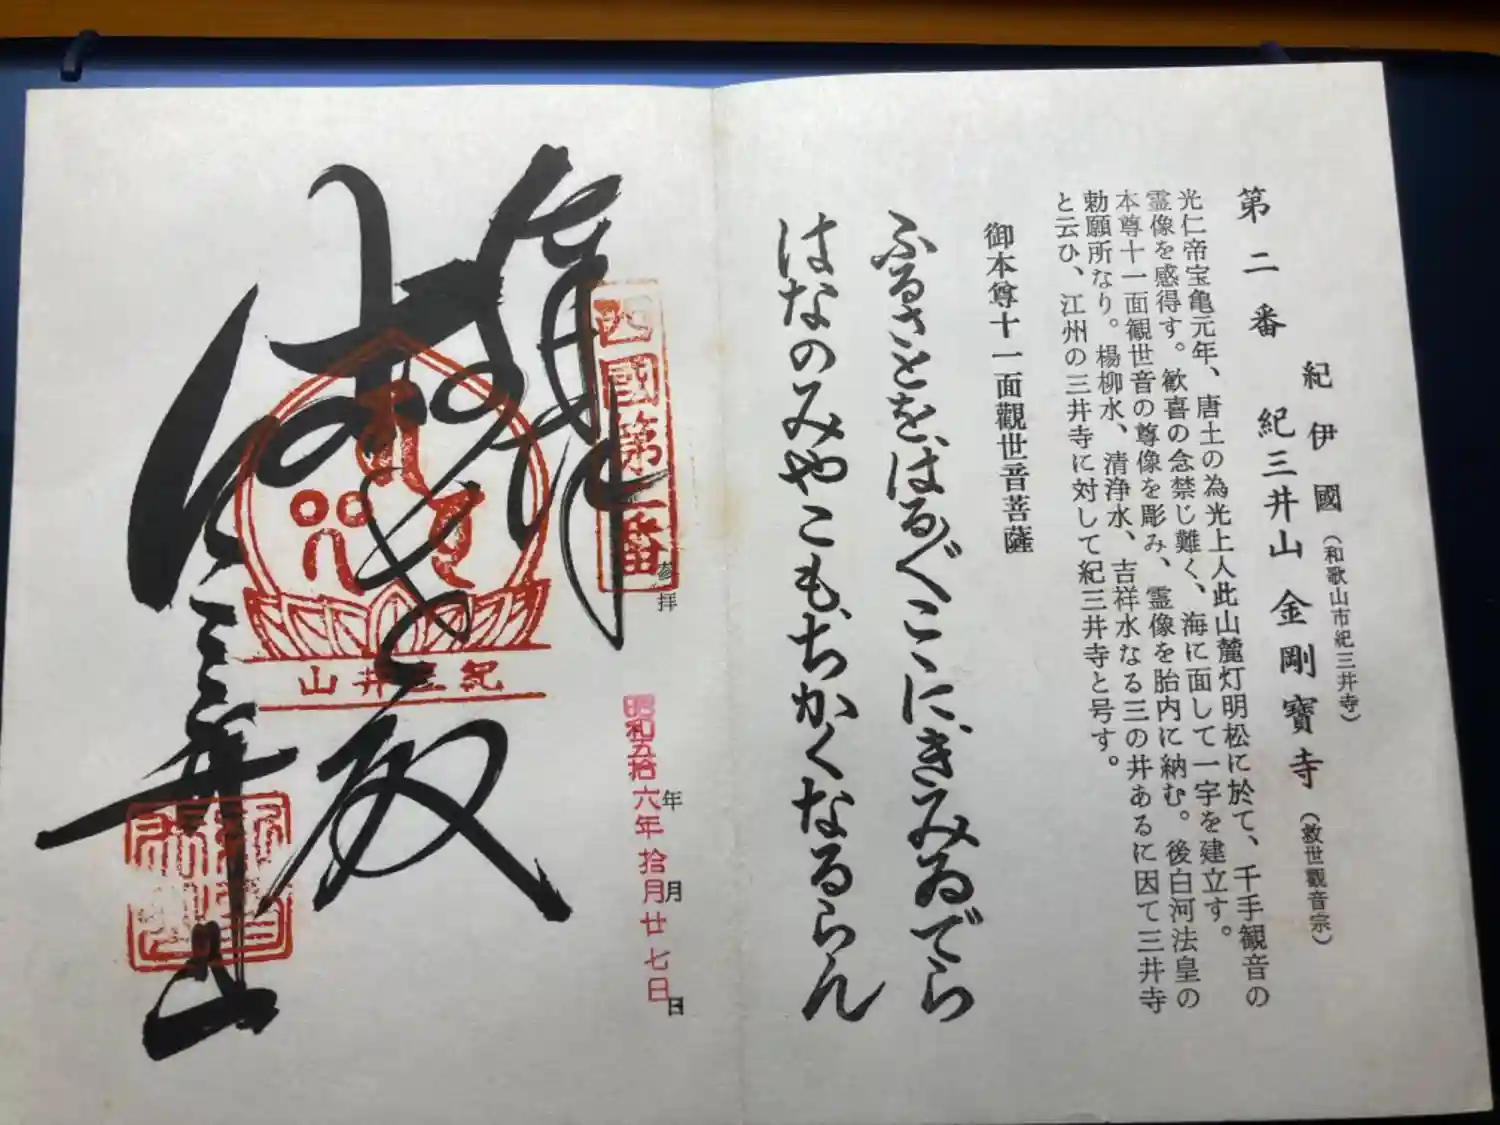 紀伊國（和歌山市紀三井寺）
第二番 紀三井山 金剛寶寺（救世觀音宗）
光仁帝宝亀元年、唐土の為光上人此山麓灯明松に於て、千手観音の
霊像を感得す。歓喜の念禁じ難く、海に面して一宇を建立す。
本尊十一面観世音の尊像を彫み、霊像を胎内に納む。後白河法皇の
勅願所なり。楊柳水、清浄水、吉祥水なる三の井あるに因て三井寺
と云ひ、江州の三井寺に対して紀三井寺と号す。
御本尊十一面觀世音菩薩
ふるさとを、はるゞヽこゝに、きみゐでら
はなのみやこも、ちかくなるらん
西國第二番
参拝
昭和五拾六年拾月廿七日
年月日
奉拝
紀三井山
紀三井山